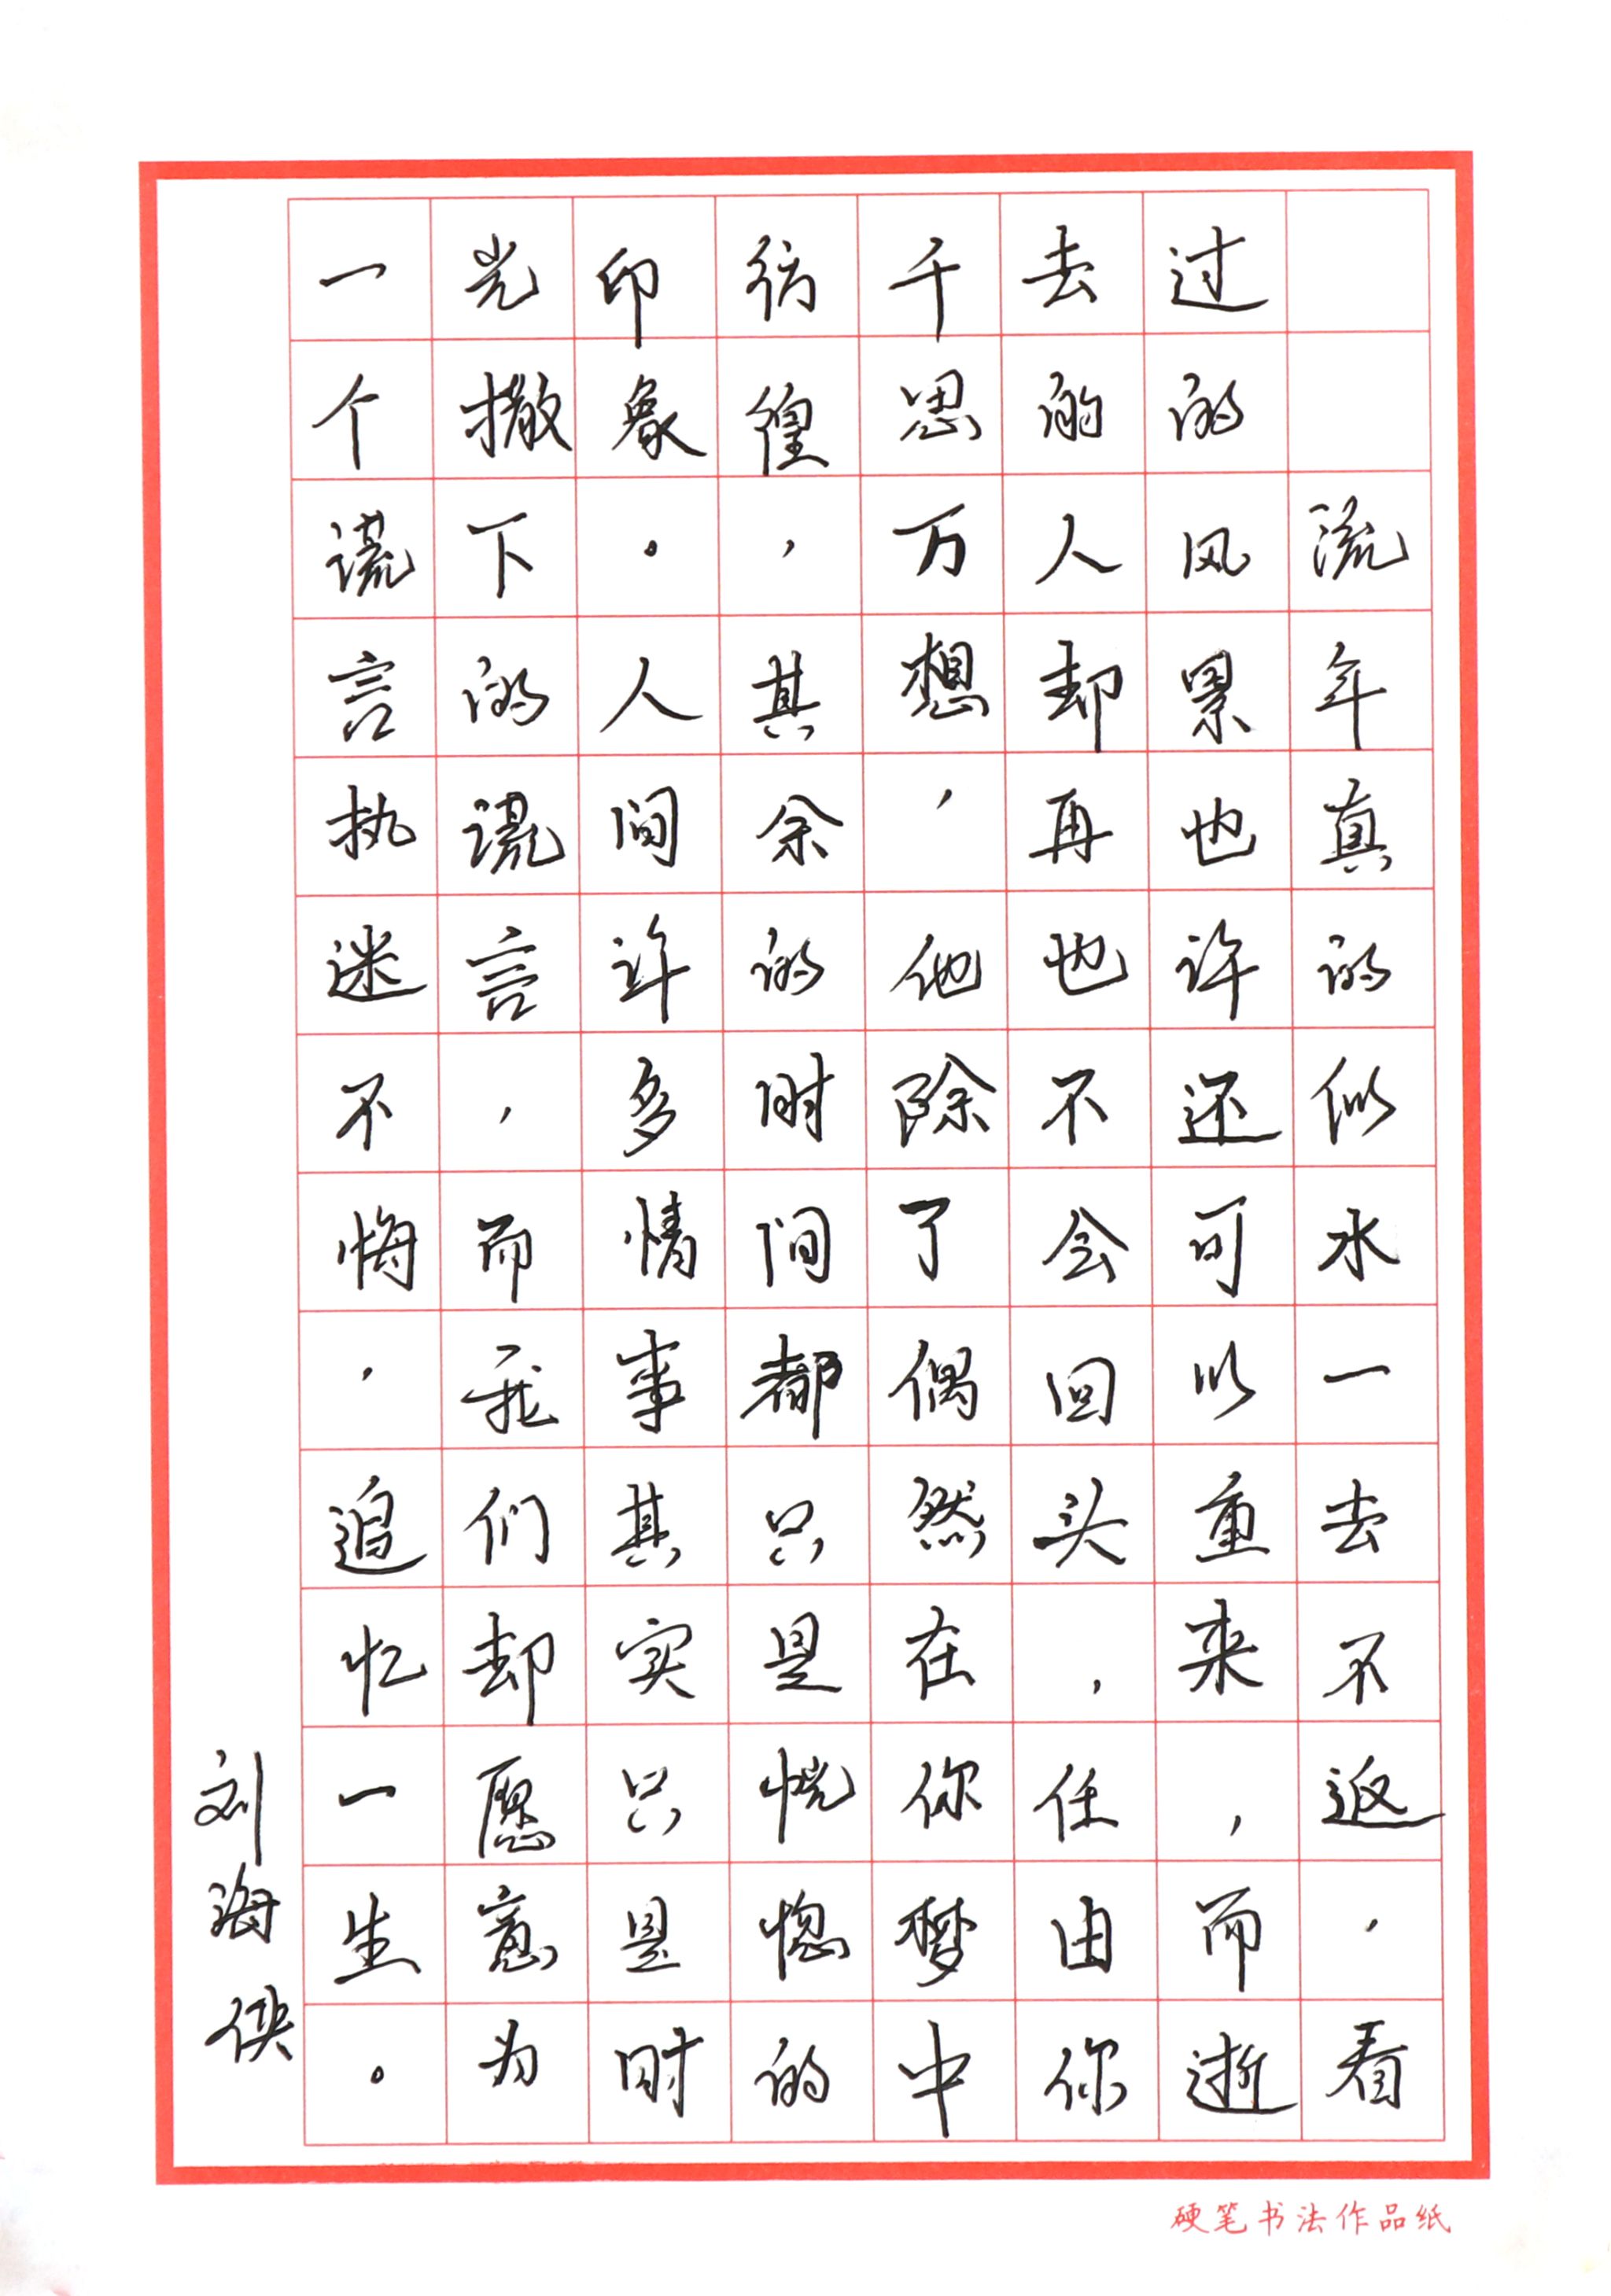 流年真的似水一去不返，看
过的风景也许还可以重来，而逝
去的人却再也不会回头，任由你
千思万想，他除了偶然在你梦中
彷徨，其余的时间都只是恍惚的
印象。人间许多情事其实只是时
光撒下的谎言，而我们却愿意为
一个谎言执迷不悔，追忆一生。
刘海侠
硬笔书法作品纸